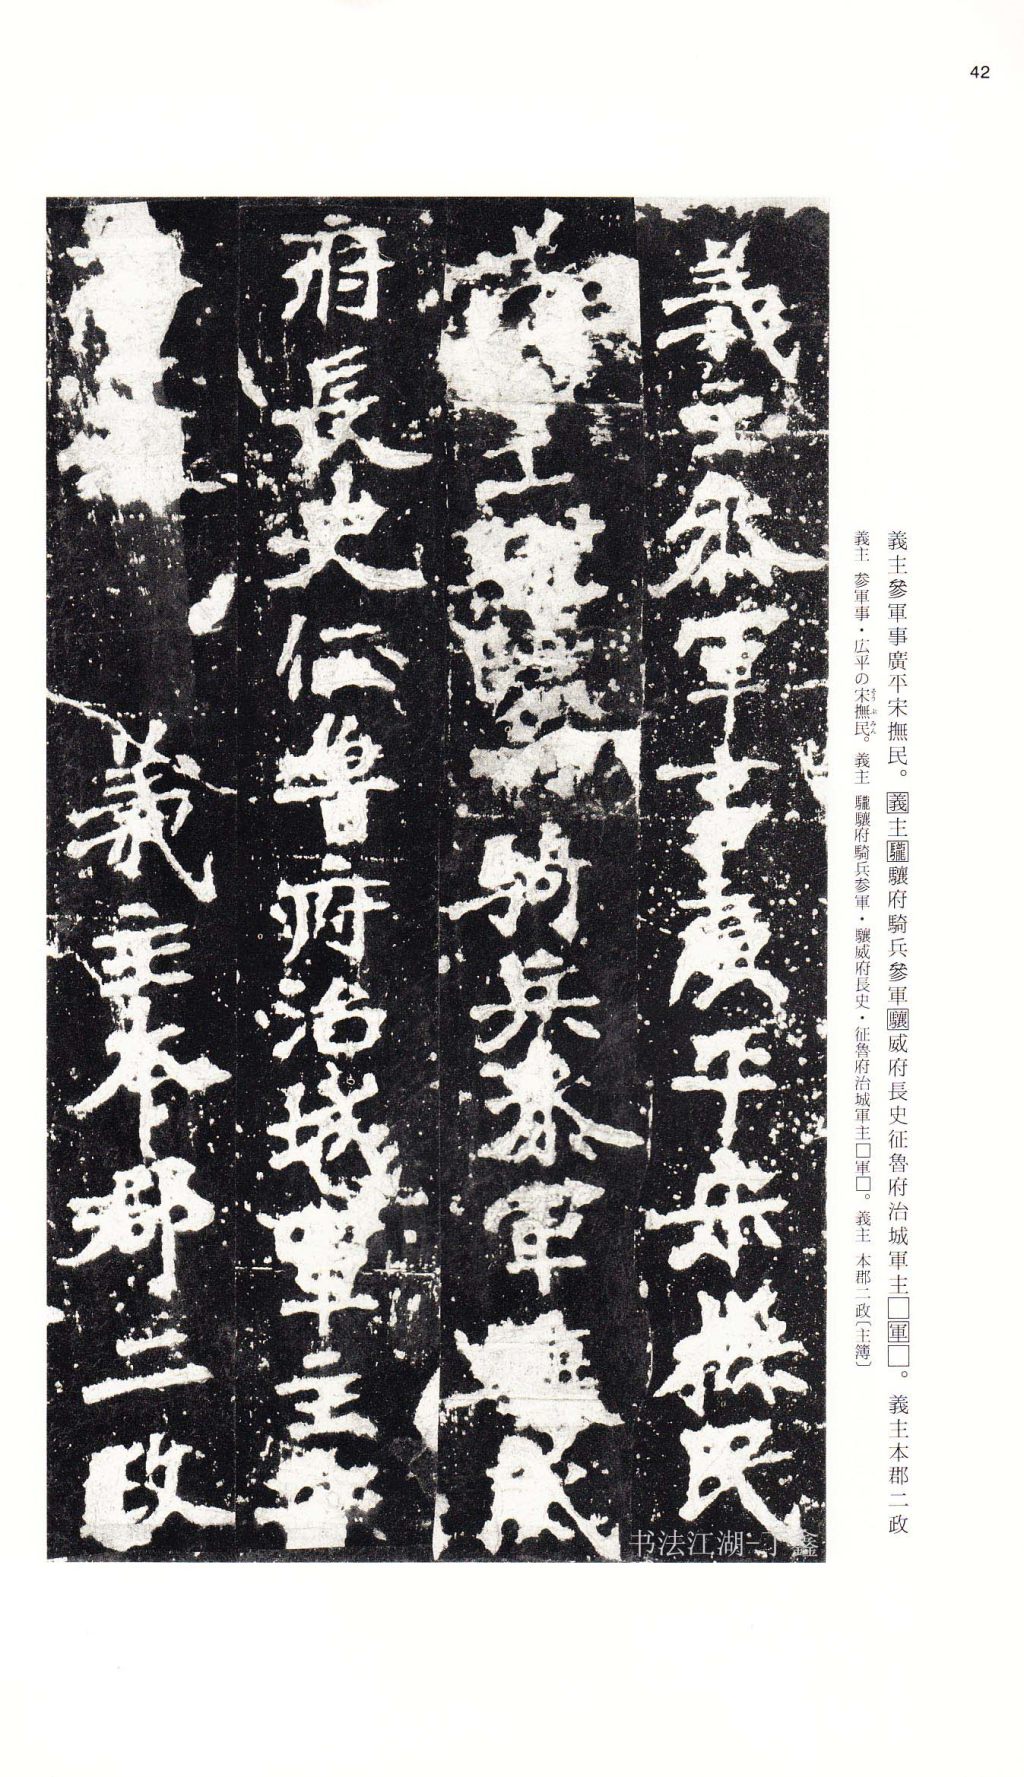 42
義主參軍事廣平宋撫民。義主驪驤府騎兵參軍驤威府長史征魯府治城軍主□軍□。義主本郡二政
義主 参軍事・広平の宋撫民。義主 驪驤府騎兵参軍・驤威府長史・征魯府治城軍主□軍□。義主 本郡二政〔主簿〕
そうぶみん
義主參軍事廣平宋撫民
義主 騎兵參軍驤威
府長史征魯府治城軍主
義主本郡二政
书法江湖-丁鑫